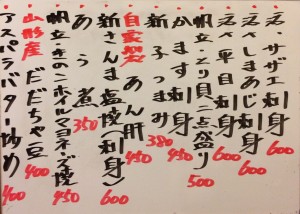 活 サザエ刺身 600
活〆しまあじ刺身 600
活〆平目刺身 600
帆立・とり貝二点盛り 500
かます刺身 450
新子つまみ 380
自家製 あん肝 450
新さんま塩焼(刺身) 600
あら煮 350
帆立・きのこホイルマヨネーズ焼 450
山形産 だだちゃ豆 400
アスパラバター炒め 400